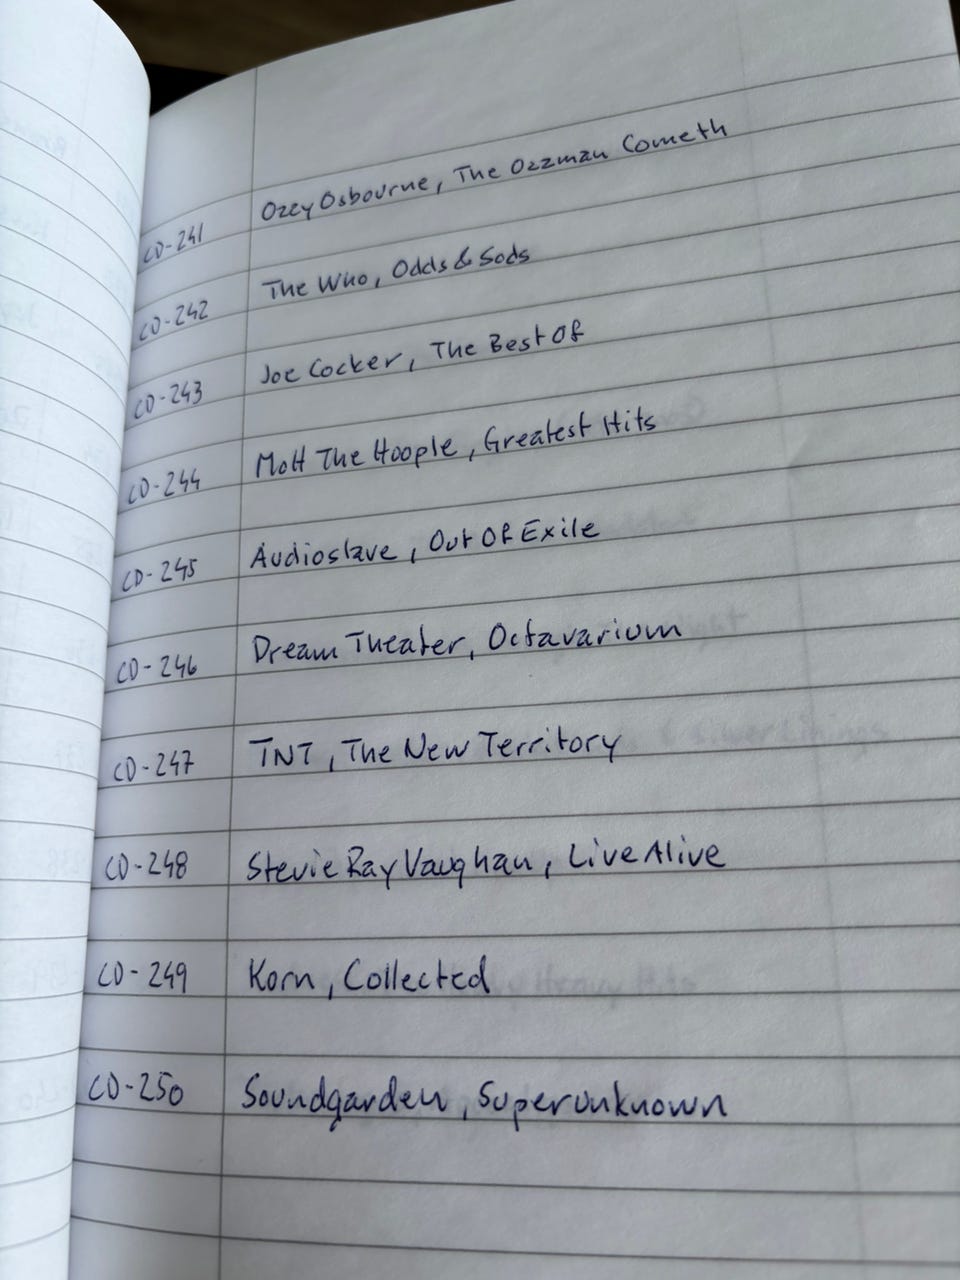 CD-241 Ozzy Osbourne, The Ozzman Cometh
CD-242 The Who, Odds & Sods
CD-243 Joe Cocker, The Best Of
CD-244 Mott The Hoople, Greatest Hits
CD-245 Audioslave, Out Of Exile
CD-246 Dream Theater, Octavarium
CD-247 TNT, The New Territory
CD-248 Stevie Ray Vaughan, Live Alive
CD-249 Korn, Collected
CD-250 Soundgarden, Superunknown